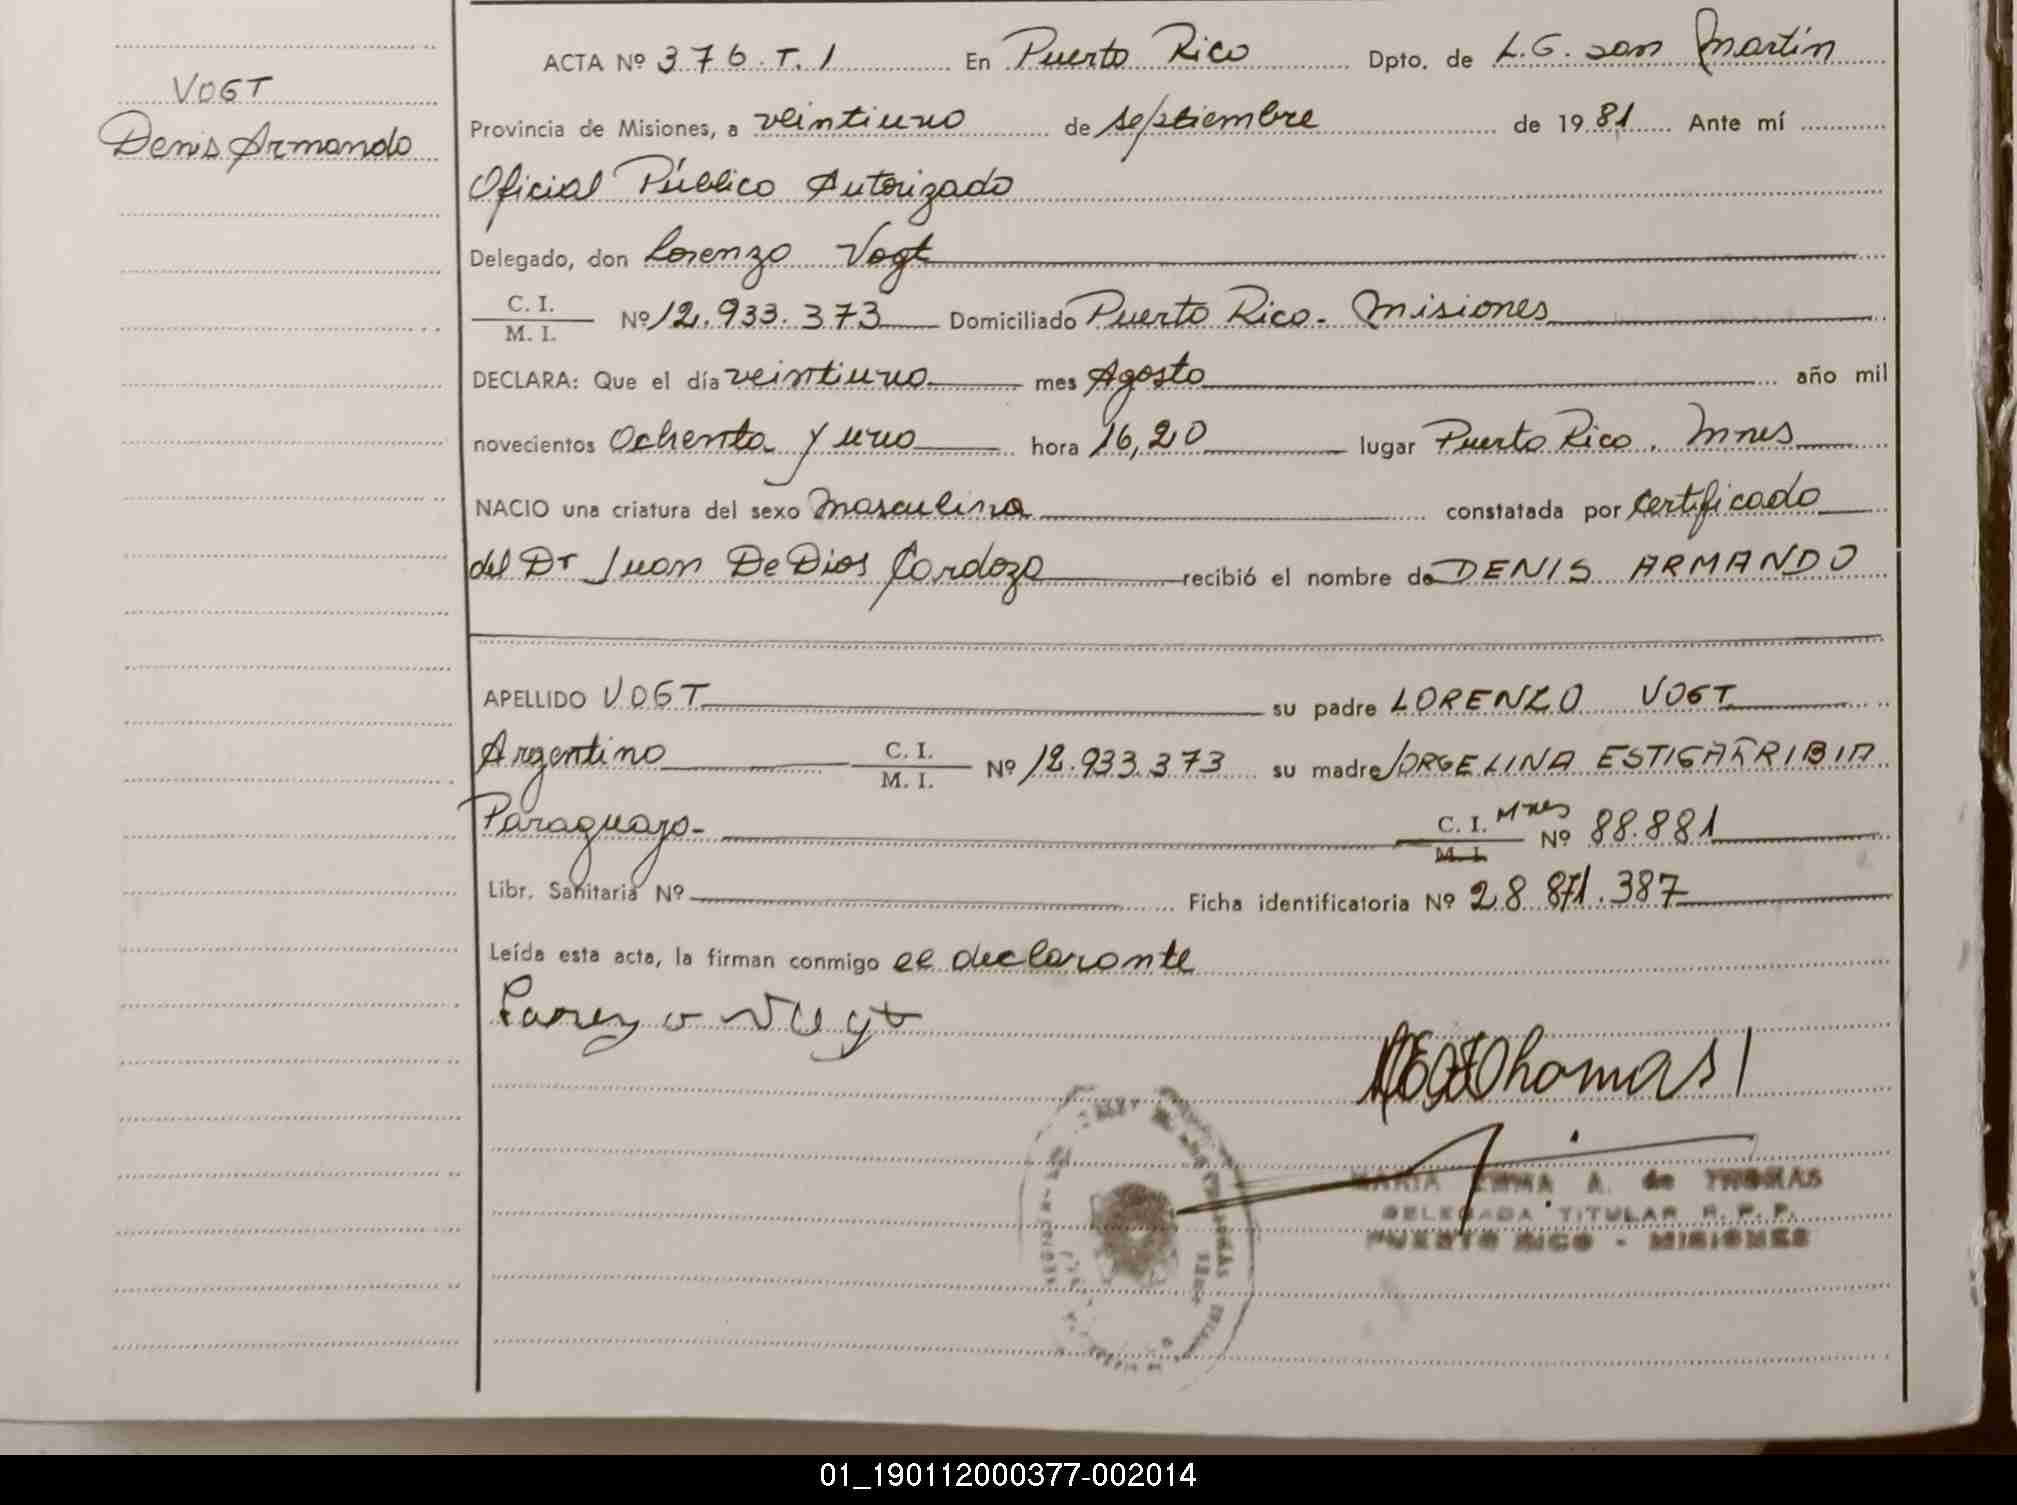 VOGT
Denis Armando
ACTA Nº 376. T. 1 En Puerto Rico Dpto. de L.G. san Martín
Provincia de Misiones, a veintiuno de septiembre de 1981 Ante mí
Oficial Público Autorizado
Delegado, don Lorenzo Vogt
C. I.
M. I. Nº 12.933.373 Domiciliado Puerto Rico - Misiones
DECLARA: Que el día veintiuno mes Agosto año mil
novecientos Ochenta y uno hora 16,20 lugar Puerto Rico. Mnes
NACIO una criatura del sexo Masculino constatada por Certificado
del Dr Juan De Dios Cardozo recibió el nombre de DENIS ARMANDO
APELLIDO VOGT su padre LORENZO VOGT
Argentino C. I.
M. I. Nº 12.933.373 su madre JORGELINA ESTIGARRIBIA
Paraguaya - C. I. Mnes
M. I. Nº 88.881
Libr. Sanitaria Nº Ficha identificatoria Nº 28.871.387
Leída esta acta, la firman conmigo el declarante
Lorenzo Vogt
Thomas
MARIA EMMA A. de THOMAS
DELEGADA TITULAR R. P. P.
PUERTO RICO - MISIONES
01_190112000377-002014